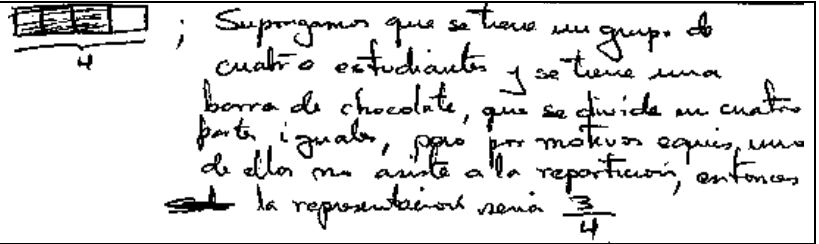 ; Supongamos que se tiene un grup. de
4 cuatro estudiantes y se tiene una
barra de chocolate, que se divide en cuatro
parte iguales, pero por motivos equis, uno
de ellos no asiste a la repartición, entonces
la representación seria 3/4